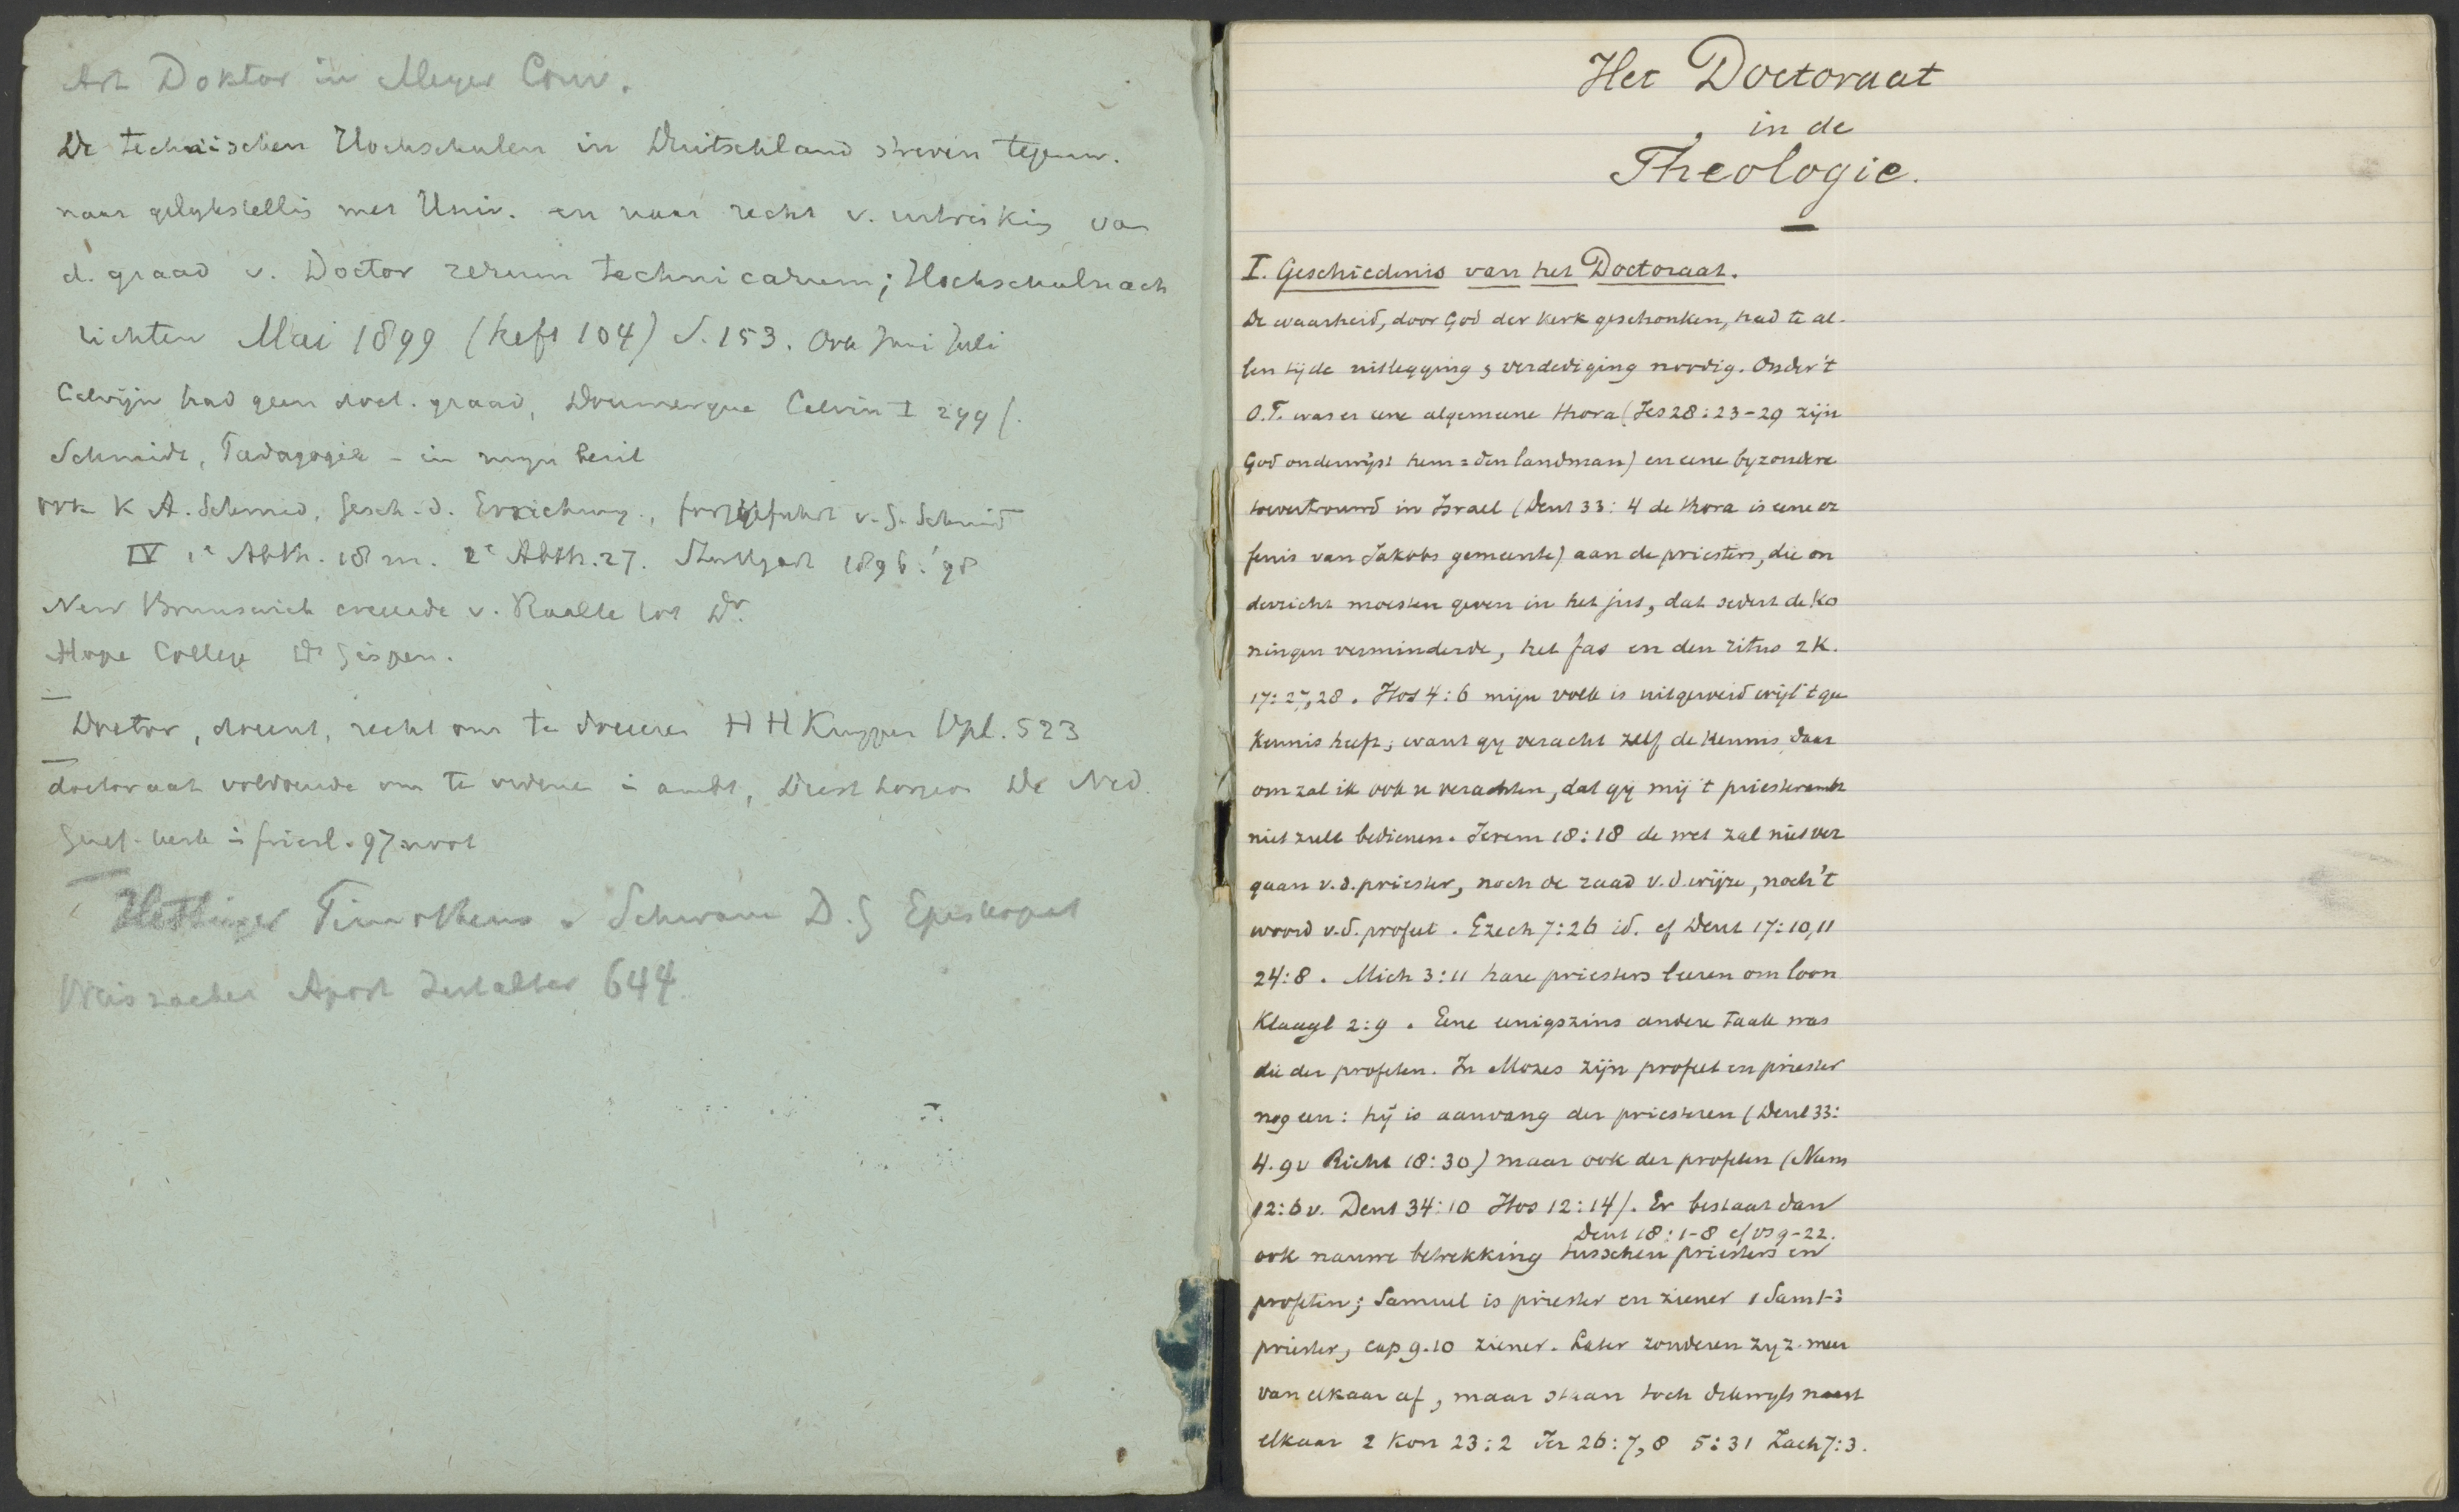 Art Doktor in Meyer Conv.
De technischen Hochschulen in Duitschland streven tegenw.
naar gelykstellig met Univ. en naar recht v. uitreikig van
d. graad v. Doctor rerum technicarum; Hochschulnach
lichten Mai 1899 (heft 104) S. 153. Ook Juni Juli
Calvijn had geen doct. graad, Doumergue Calvin I 299f.
Schmidt, Padagogik - in myn bezit
ook K A. Schmid, Gesch. d. Erziehung, fortgeführt v. G. Schmid
IV 1e Abth. 18 m. 2e Abth. 27. Stuttgart 1896. '98
New Brunswick creëerde v. Raalte tot Dr.
Hope College Dr Gispen.
Doctor, docent, recht om te doceren H H Kuyper Opl. 523
doctoraat voldoende om te dienen in ambt, De Ned.
Geref. kerk in Friesl. 97
Hettinger Timotheus. Schwane D. G Episkopat
Weiszacker Apost Zeitalter 644
Het Doctoraat
in de
Theologie.
I. Geschiedenis van het Doctoraat.
De waarheid, door God der kerk geschonken, had te al-
len tijde uitlegging & verdediging noodig. Onder 't
O.T. was er eene algemeene thora (Jes 28:23-29 zijn
God onderwijst hem = den landman) en eene byzondere
toevertrouwd in Israel (Deut 33:4 de thora is eene er
fenis van Jakobs gemeente) aan de priesters, die on
derricht moesten geven in het jus, dat sedert de ko
ningen verminderde, het fas en den ritus 2 K.
17:27,28. Hos 4:6 mijn volk is uitgeroeid wijl 't gee
kennis heeft; want gy veracht zelf de kennis, daar
om zal ik ook u verachten, dat gij mij 't priesterambt
niet zult bedienen. Jerem 18:18 de wet zal niet ver
gaan v.d. priester, noch de raad v.d. wijze, noch 't
woord v.d. profeet. Ezech 7:26 id. cf Deut 17:10,11
24:8. Mich 3:11 hare priesters leeren om loon
Klaagl 2:9. Eene eenigszins andere taak was
die der profeten. In Mozes zijn profeet en priester
nog een: hij is aanvang der priesteren (Deut 33:
4.9v Richt 18:30) maar ook der profeten (Num
12:6v. Deut 34:10 Hos 12:14). Er bestaat dan
Deut 18:1-8 cf vs 9-22.
ook nauwe betrekking tusschen priesters en
profeten; Samuel is priester en ziener 1 Sam 1-3
priester, cap 9.10 ziener. Later zonderen zy z. meer
van elkaar af, maar staan toch dikwyls naast
elkaar 2 Kon 23:2 Jer 26:7,8 5:31 Zach 7:3.